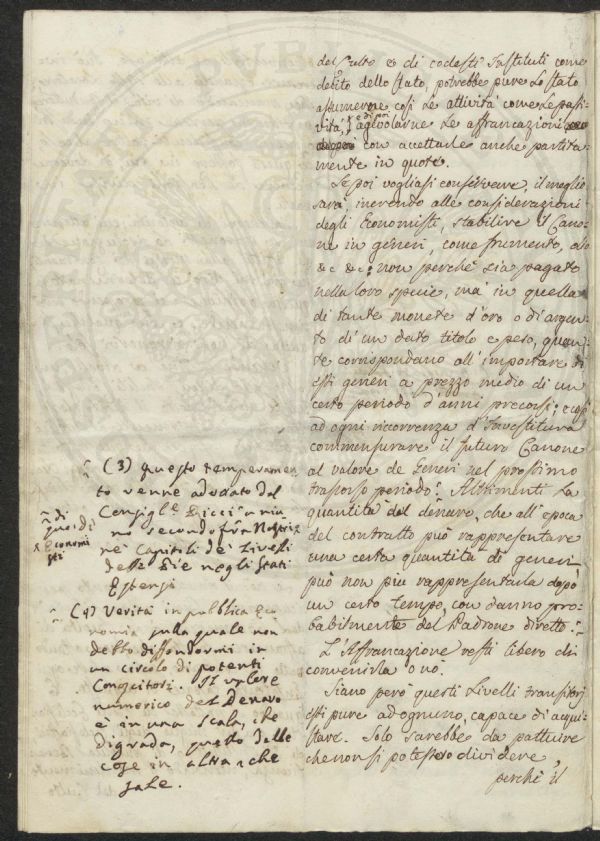 del Culto e di codesti Instituti come
debito dello Stato, potrebbe pure lo Stato
assumerne così le attività come le passi-
vità, ed agevolarne le affrancazioni
con accettarle anche partita-
mente in quote.
Se poi vogliasi conservare, il meglio
sarà, inerendo alle considerazioni
degli Economisti, stabilire il Cano-
ne in generi, come frumento,
&c &c; non perchè sia pagato
nella loro specie, mà in quella
di tante monete d'oro o d'argen-
to di un dato titolo e peso, quan-
te corrispondano all'importare di
esti generi a prezzo medio di un
certo periodo d'anni precorsi; e così
ad ogni ricorrenza d'Investitura
commensurare il futuro Canone
al valore de generi nel prossimo
trascorso periodo. Altrimenti la
quantità del denaro, che all'epoca
del contratto può rappresentare
una certa quantità di generi
può non più rappresentarla dopo
un certo tempo, con danno pro-
babilmente del Padrone diretto.
L'Affrancazione resti libero di
convenirla o nò.
Siano però questi Livelli transitorj
esti pure ad ognuno, capace di acqui-
stare. Solo sarebbe da pattuire
che non si potessero dividere,
perchè il
(3) questo temperamen-
to venne adottato dal
Consigl.e Ricci
secondo
ne Capitoli de' Livelli
negli Stati
Estensi
di
quei di
x Economi
sti
(4) Verità in pubblica Eco
nomia sulla quale non
debbo diffondermi in
un circolo di potenti
Conoscitori. Il valore
numerico del Denaro
è in una scala, che
digrada, quello delle
cose in altra che
sale.